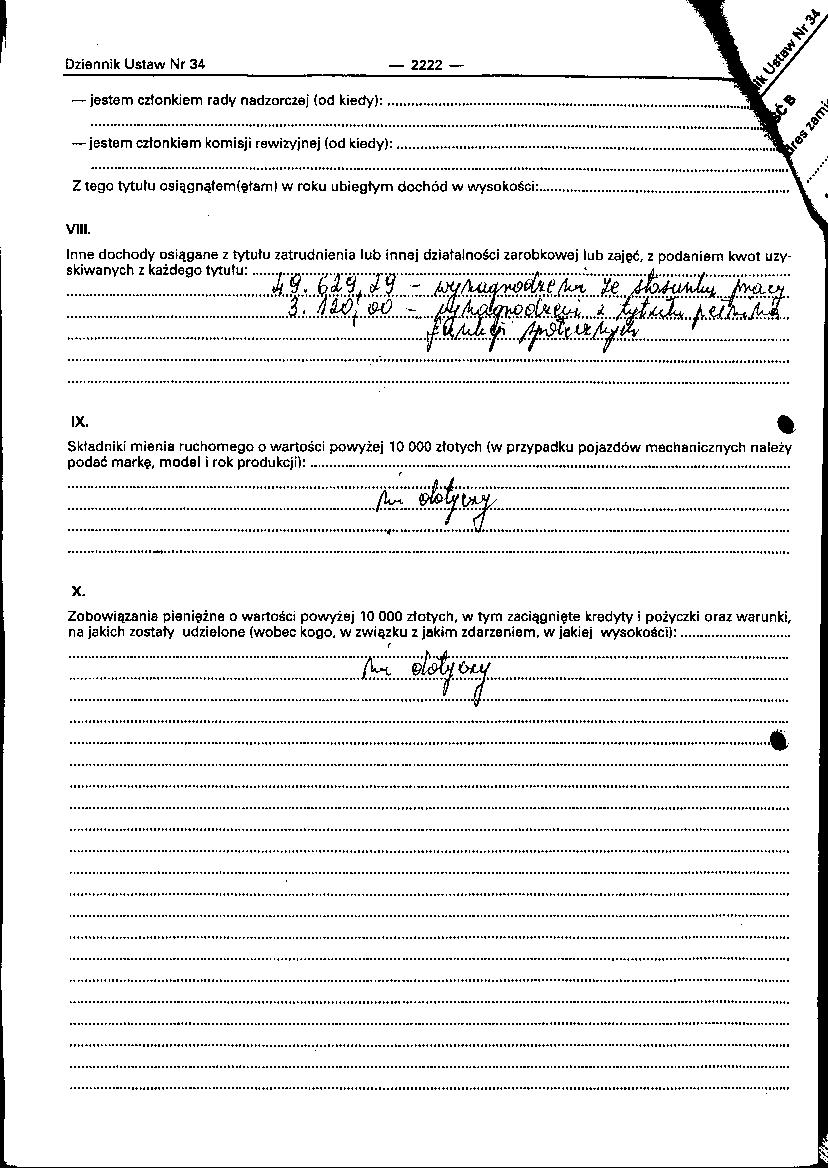 Dziennik Ustaw Nr 34 — 2222 —
— jestem członkiem rady nadzorczej (od kiedy):
— jestem członkiem komisji rewizyjnej (od kiedy):
Z tego tytułu osiągnąłem(ęłam) w roku ubiegłym dochód w wysokości:
VIII.
Inne dochody osiągane z tytułu zatrudnienia lub innej działalności zarobkowej lub zajęć, z podaniem kwot uzy-
skiwanych z każdego tytułu:
49.629,29 - wynagrodzenie ze stosunku pracy
3.120,00 - z tytułu pełnienia
funkcji społecznych
IX.
Składniki mienia ruchomego o wartości powyżej 10 000 złotych (w przypadku pojazdów mechanicznych należy
podać markę, model i rok produkcji):
nie dotyczy
X.
Zobowiązania pieniężne o wartości powyżej 10 000 złotych, w tym zaciągnięte kredyty i pożyczki oraz warunki,
na jakich zostały udzielone (wobec kogo, w związku z jakim zdarzeniem, w jakiej wysokości):
nie dotyczy
Ustaw Nr 34
B